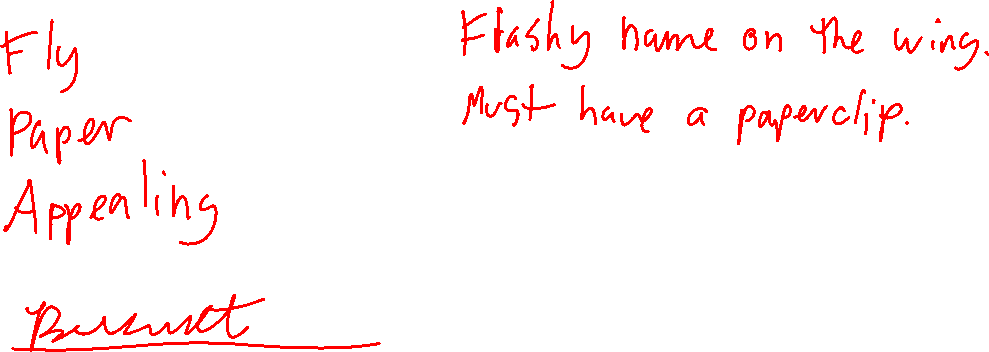 Fly
Paper
Appealing
Flashy name on the wing.
Must have a paperclip.